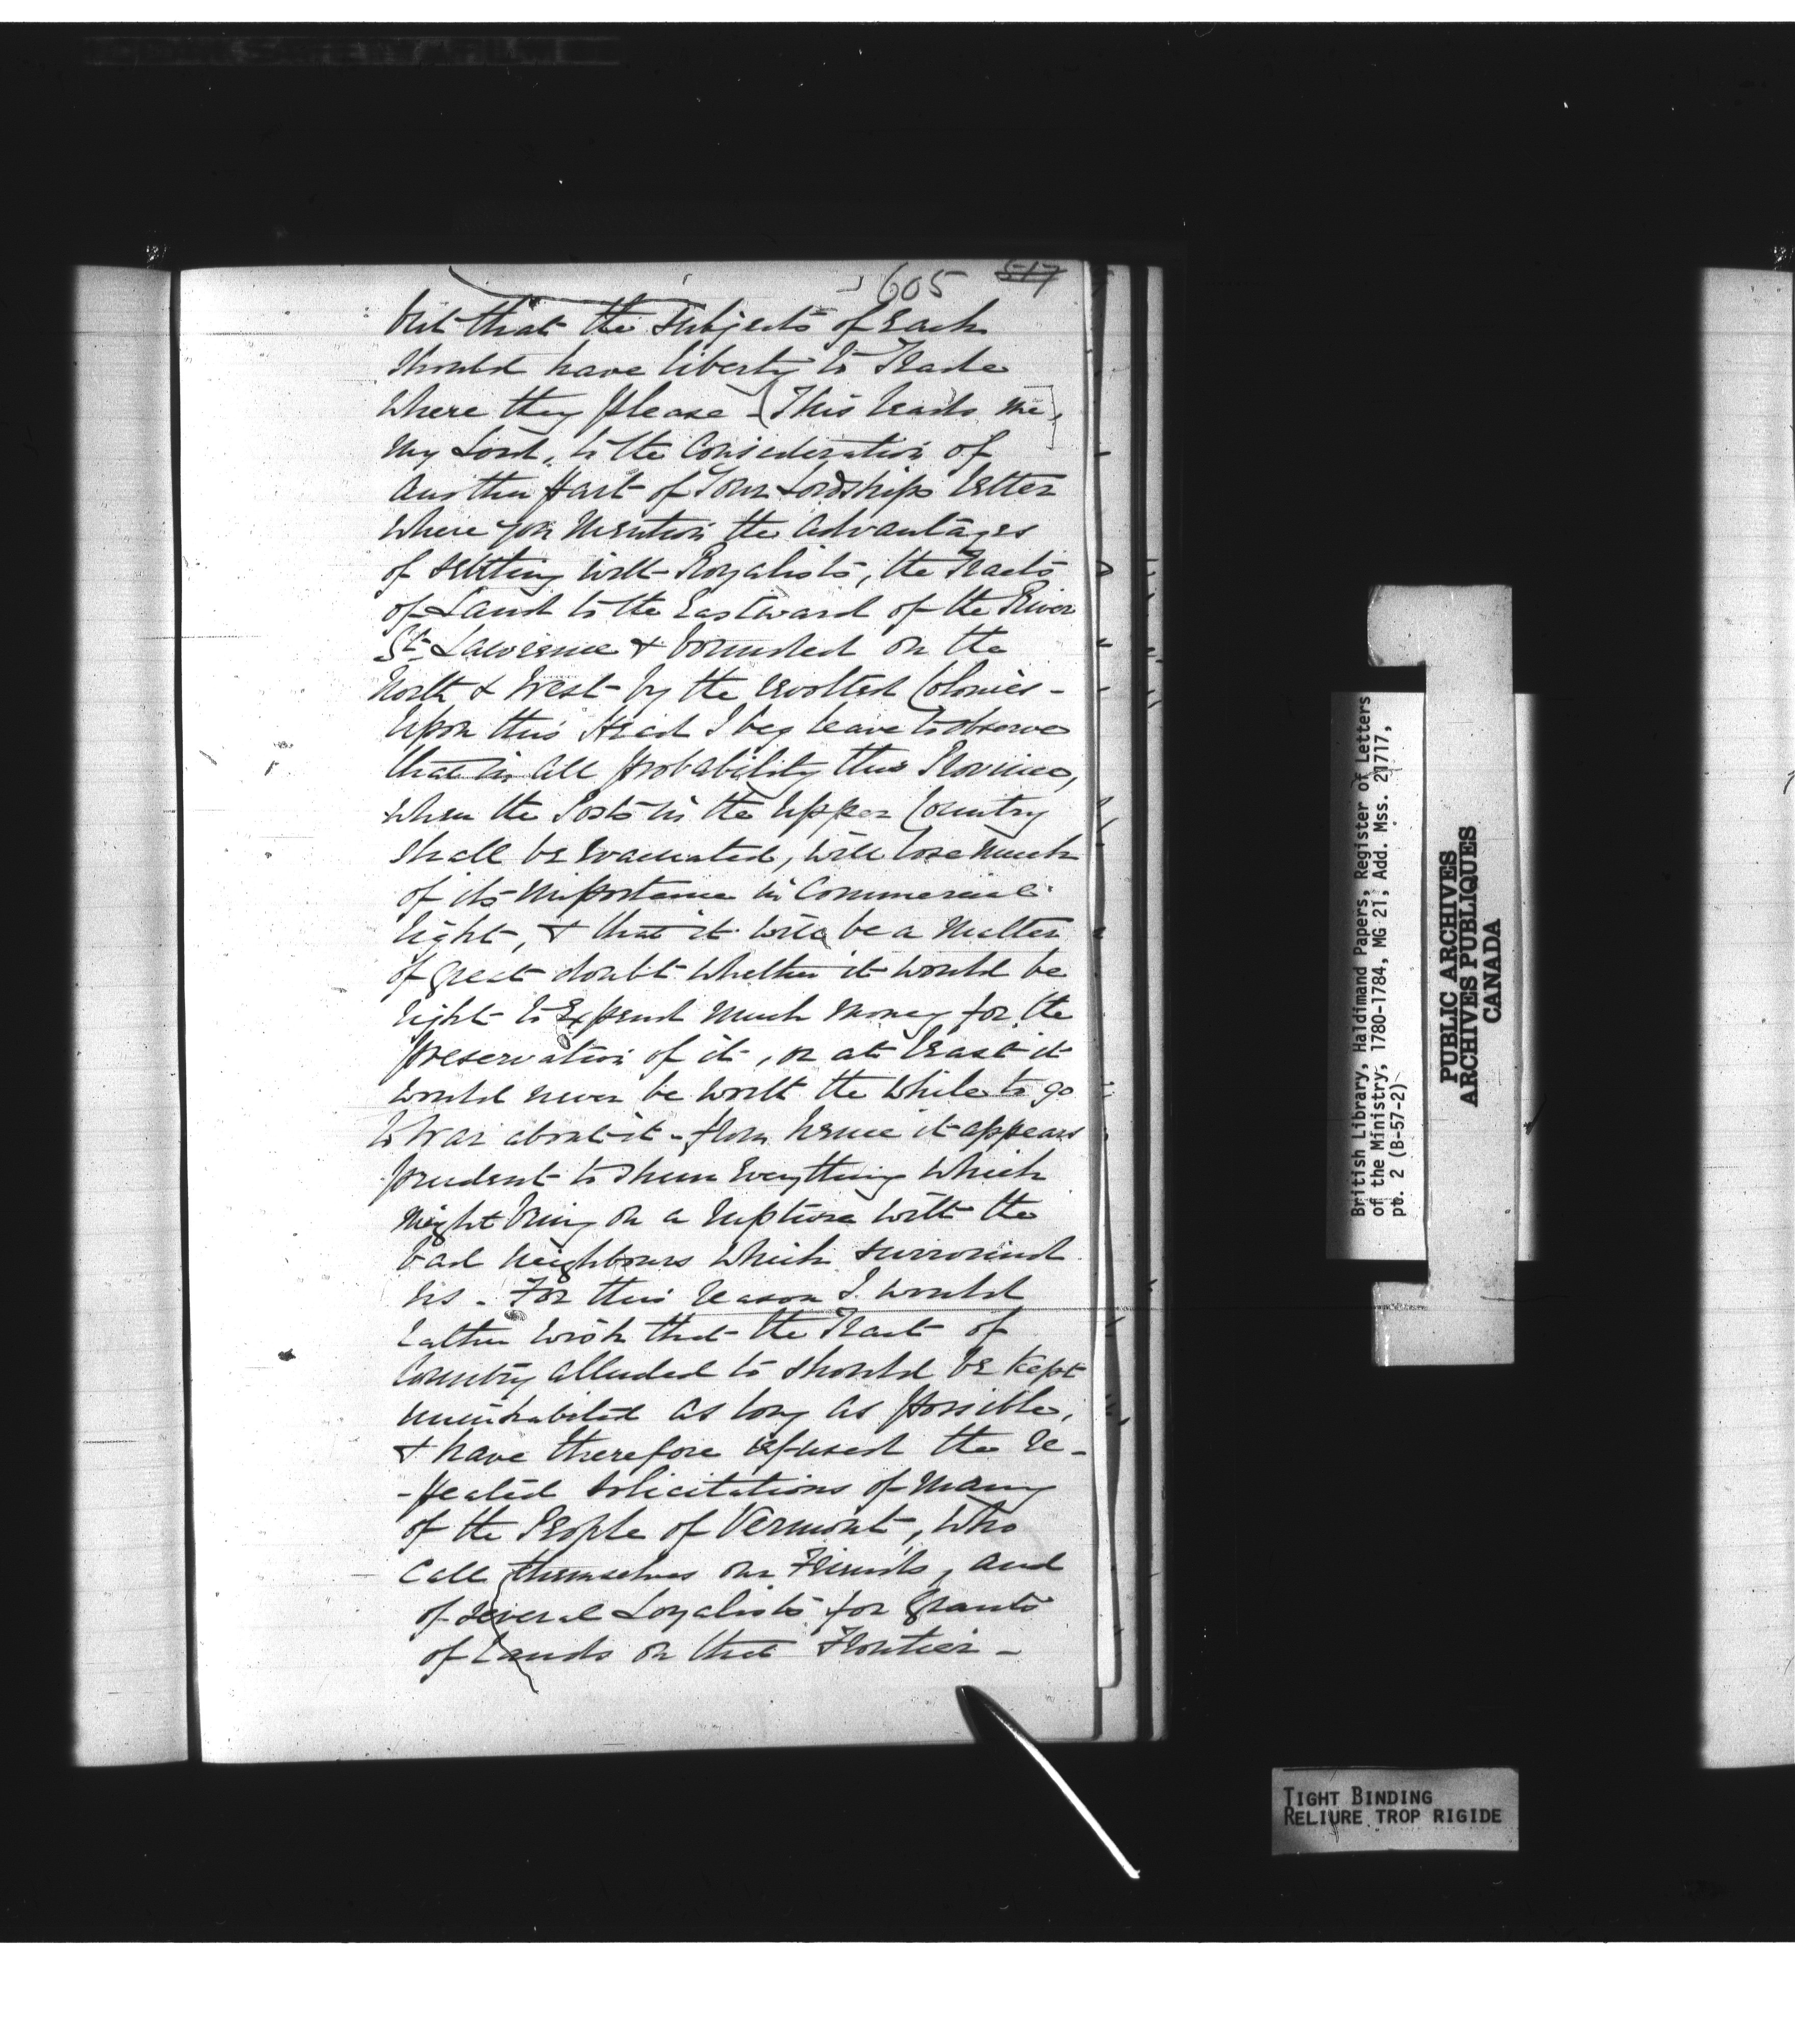 605 517
but that the Subjects of Each
should have liberty to Trade
where they please - [This leads me,]
My Lord, to the Consideration of
another Part of Your Lordships letter
where you Mention the advantages
of settling with Royalists, the Tracts
of Land to the Eastward of the River
St. Lawrence & bounded on the
North & West by the revolted Colonies -
Upon this Head I beg leave to observe
that in all probability this Province,
when the Posts in the Upper Country
shall be Evacuated, will lose much
of its importance in Commercial
light, & that it will be a Matter
of great doubt whether it would be
right to Expend much money for the
preservation of it, or at least it
would never be worth the while to go
to War about it - from hence it appears
prudent to shun Everything which
might bring on a rupture with the
bad neighbours which surround
us - For this reason I would
rather wish that the Tract of
Country alluded to should be Kept
uninhabited as long as possible,
& have therefore refused the re-
-peated solicitations of many
of the People of Vermont, who
Call themselves our Friends, and
of several Loyalists for Grants
of Lands on that Frontier -
British Library, Haldimand Papers, Register of Letters
of the Ministry, 1780-1784, MG 21, Add. Mss. 21717,
pt. 2 (B-57-2)
PUBLIC ARCHIVES
ARCHIVES PUBLIQUES
CANADA
TIGHT BINDING
RELIURE TROP RIGIDE